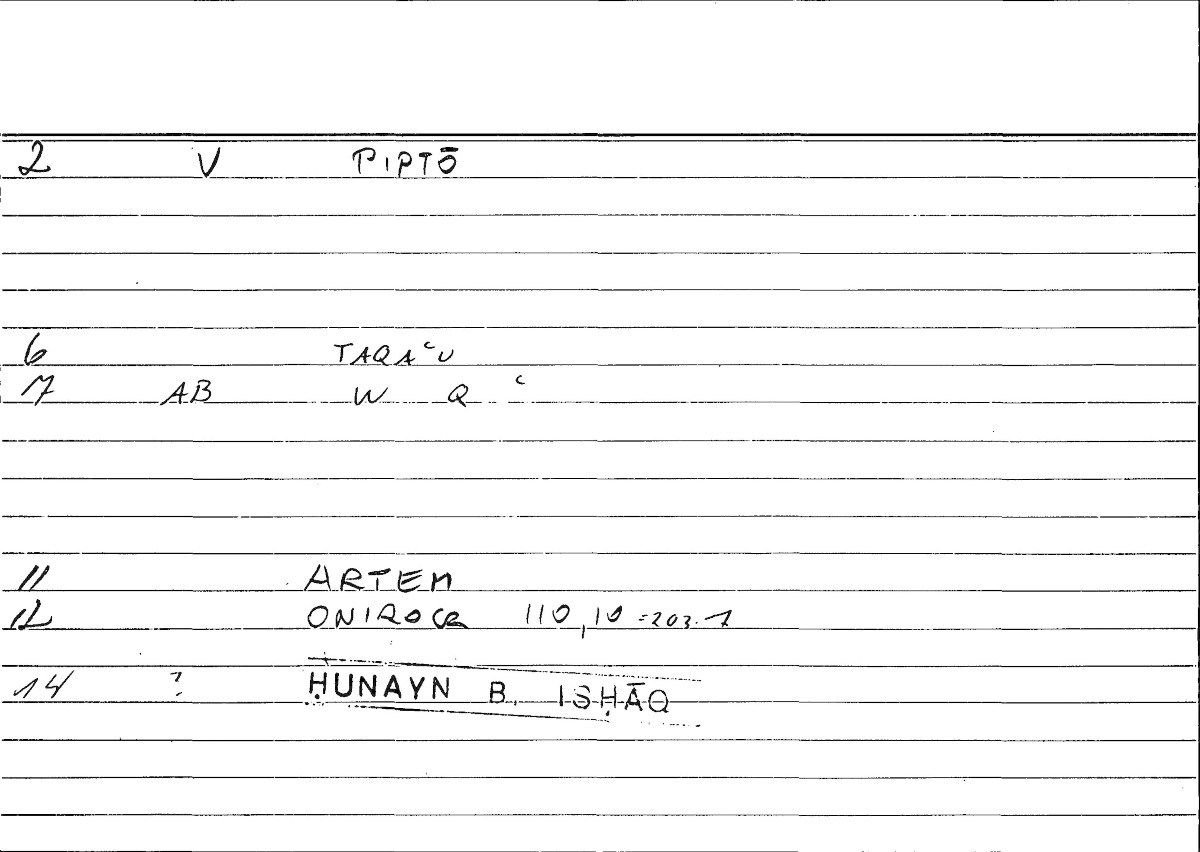 2 V PIPTŌ
6 TAQAʿU
7 AB W Q ʿ
11 ARTEM
12 ONIROCR 110,10 =203.7
14 ? ḤUNAYN B. ISḤĀQ